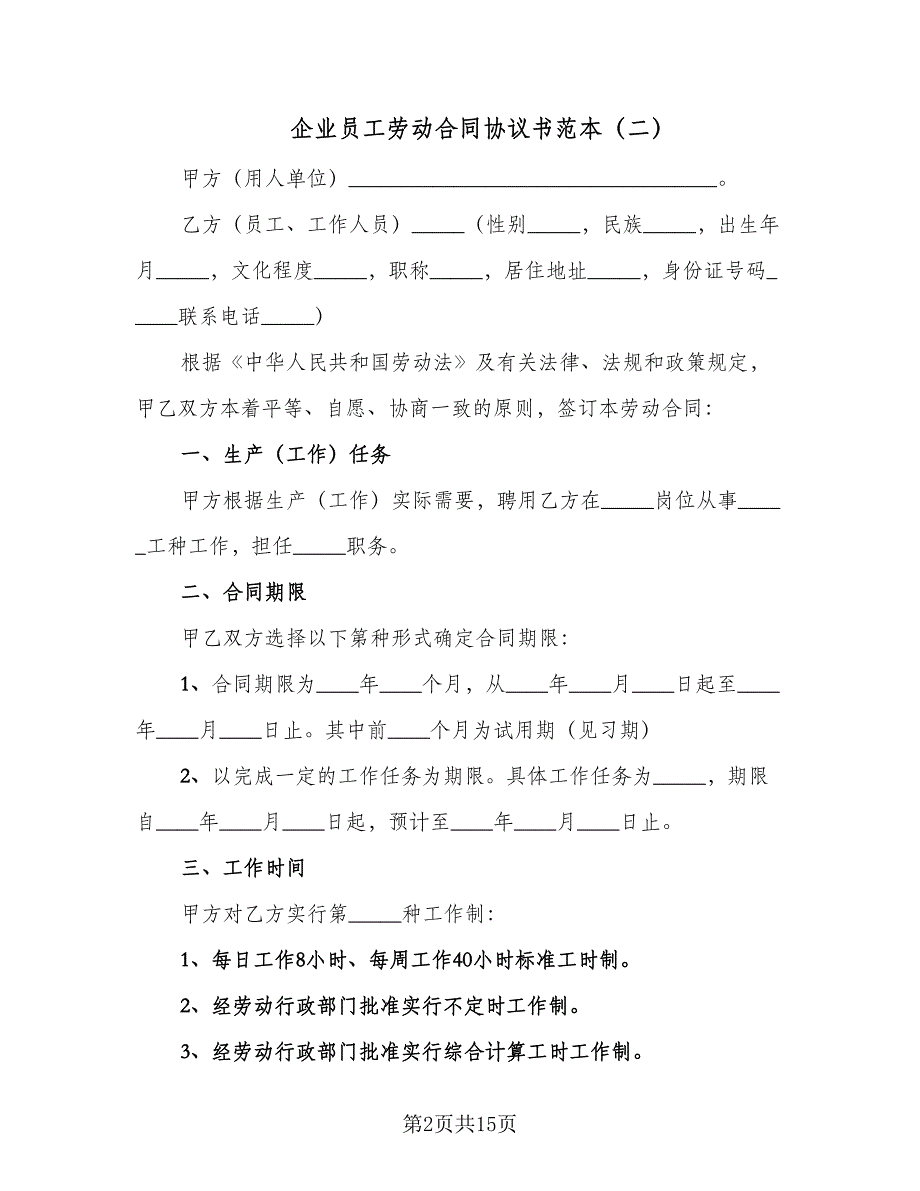 企业员工劳动合同协议书范本（二）
甲方（用人单位）___________________________________。
乙方（员工、工作人员）_____（性别_____，民族_____，出生年
月_____，文化程度_____，职称_____，居住地址_____，身份证号码_
____联系电话_____）
根据《中华人民共和国劳动法》及有关法律、法规和政策规定，
甲乙双方本着平等、自愿、协商一致的原则，签订本劳动合同：
一、生产（工作）任务
甲方根据生产（工作）实际需要，聘用乙方在_____岗位从事____
_工种工作，担任_____职务。
二、合同期限
甲乙双方选择以下第种形式确定合同期限：
1、合同期限为____年____个月，从____年____月____日起至____
年____月____日止。其中前____个月为试用期（见习期）
2、以完成一定的工作任务为期限。具体工作任务为_____，期限
自____年____月____日起，预计至____年____月____日止。
三、工作时间
甲方对乙方实行第_____种工作制：
1、每日工作8小时、每周工作40小时标准工时制。
2、经劳动行政部门批准实行不定时工作制。
3、经劳动行政部门批准实行综合计算工时工作制。
第2页共15页